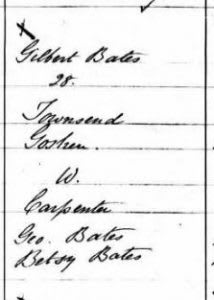 Gilbert Bates
28.
Townsend
Goshen.
W.
Carpenter
Geo. Bates
Betsy Bates